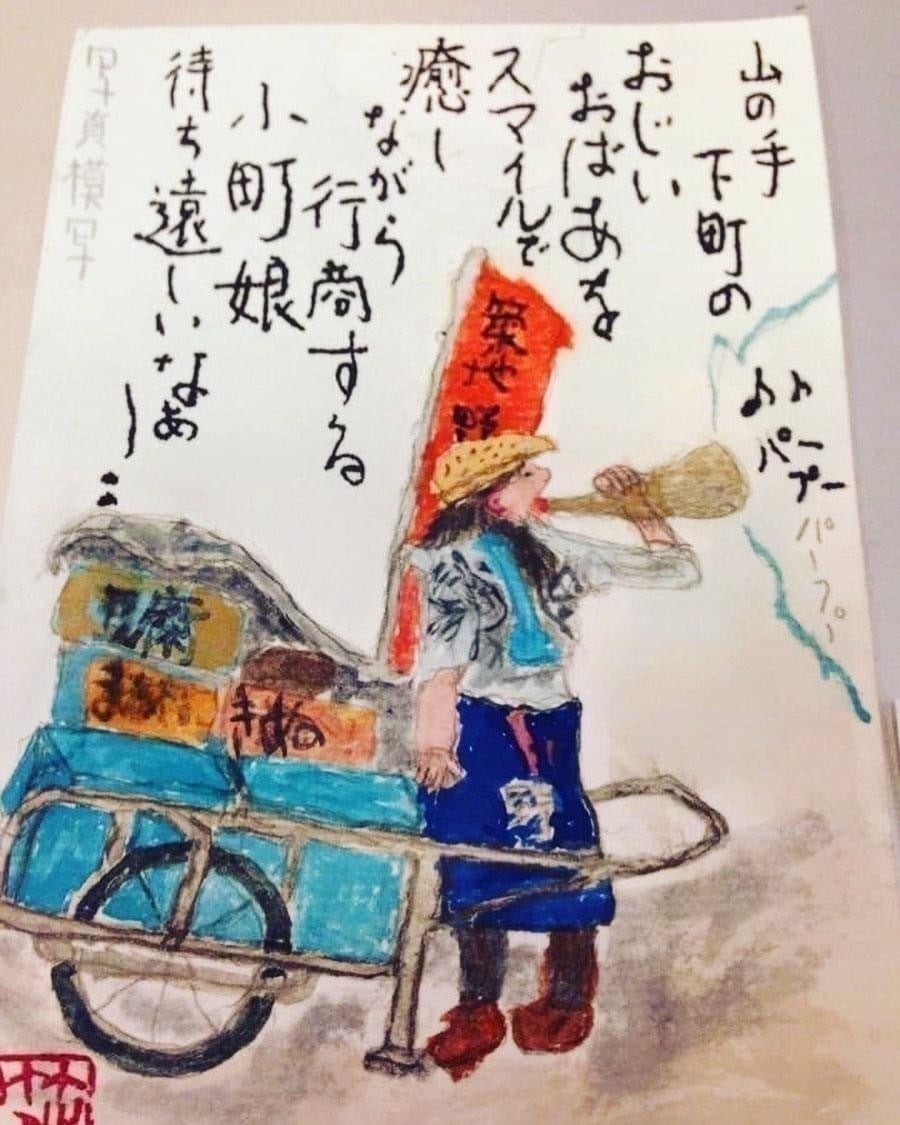 山の手
下町の
おじい
おばあを
スマイルで
癒し
ながら
行商する
小町娘
待ち遠しいなぁ
写真模写
パープー
パープー
築地
きぬ